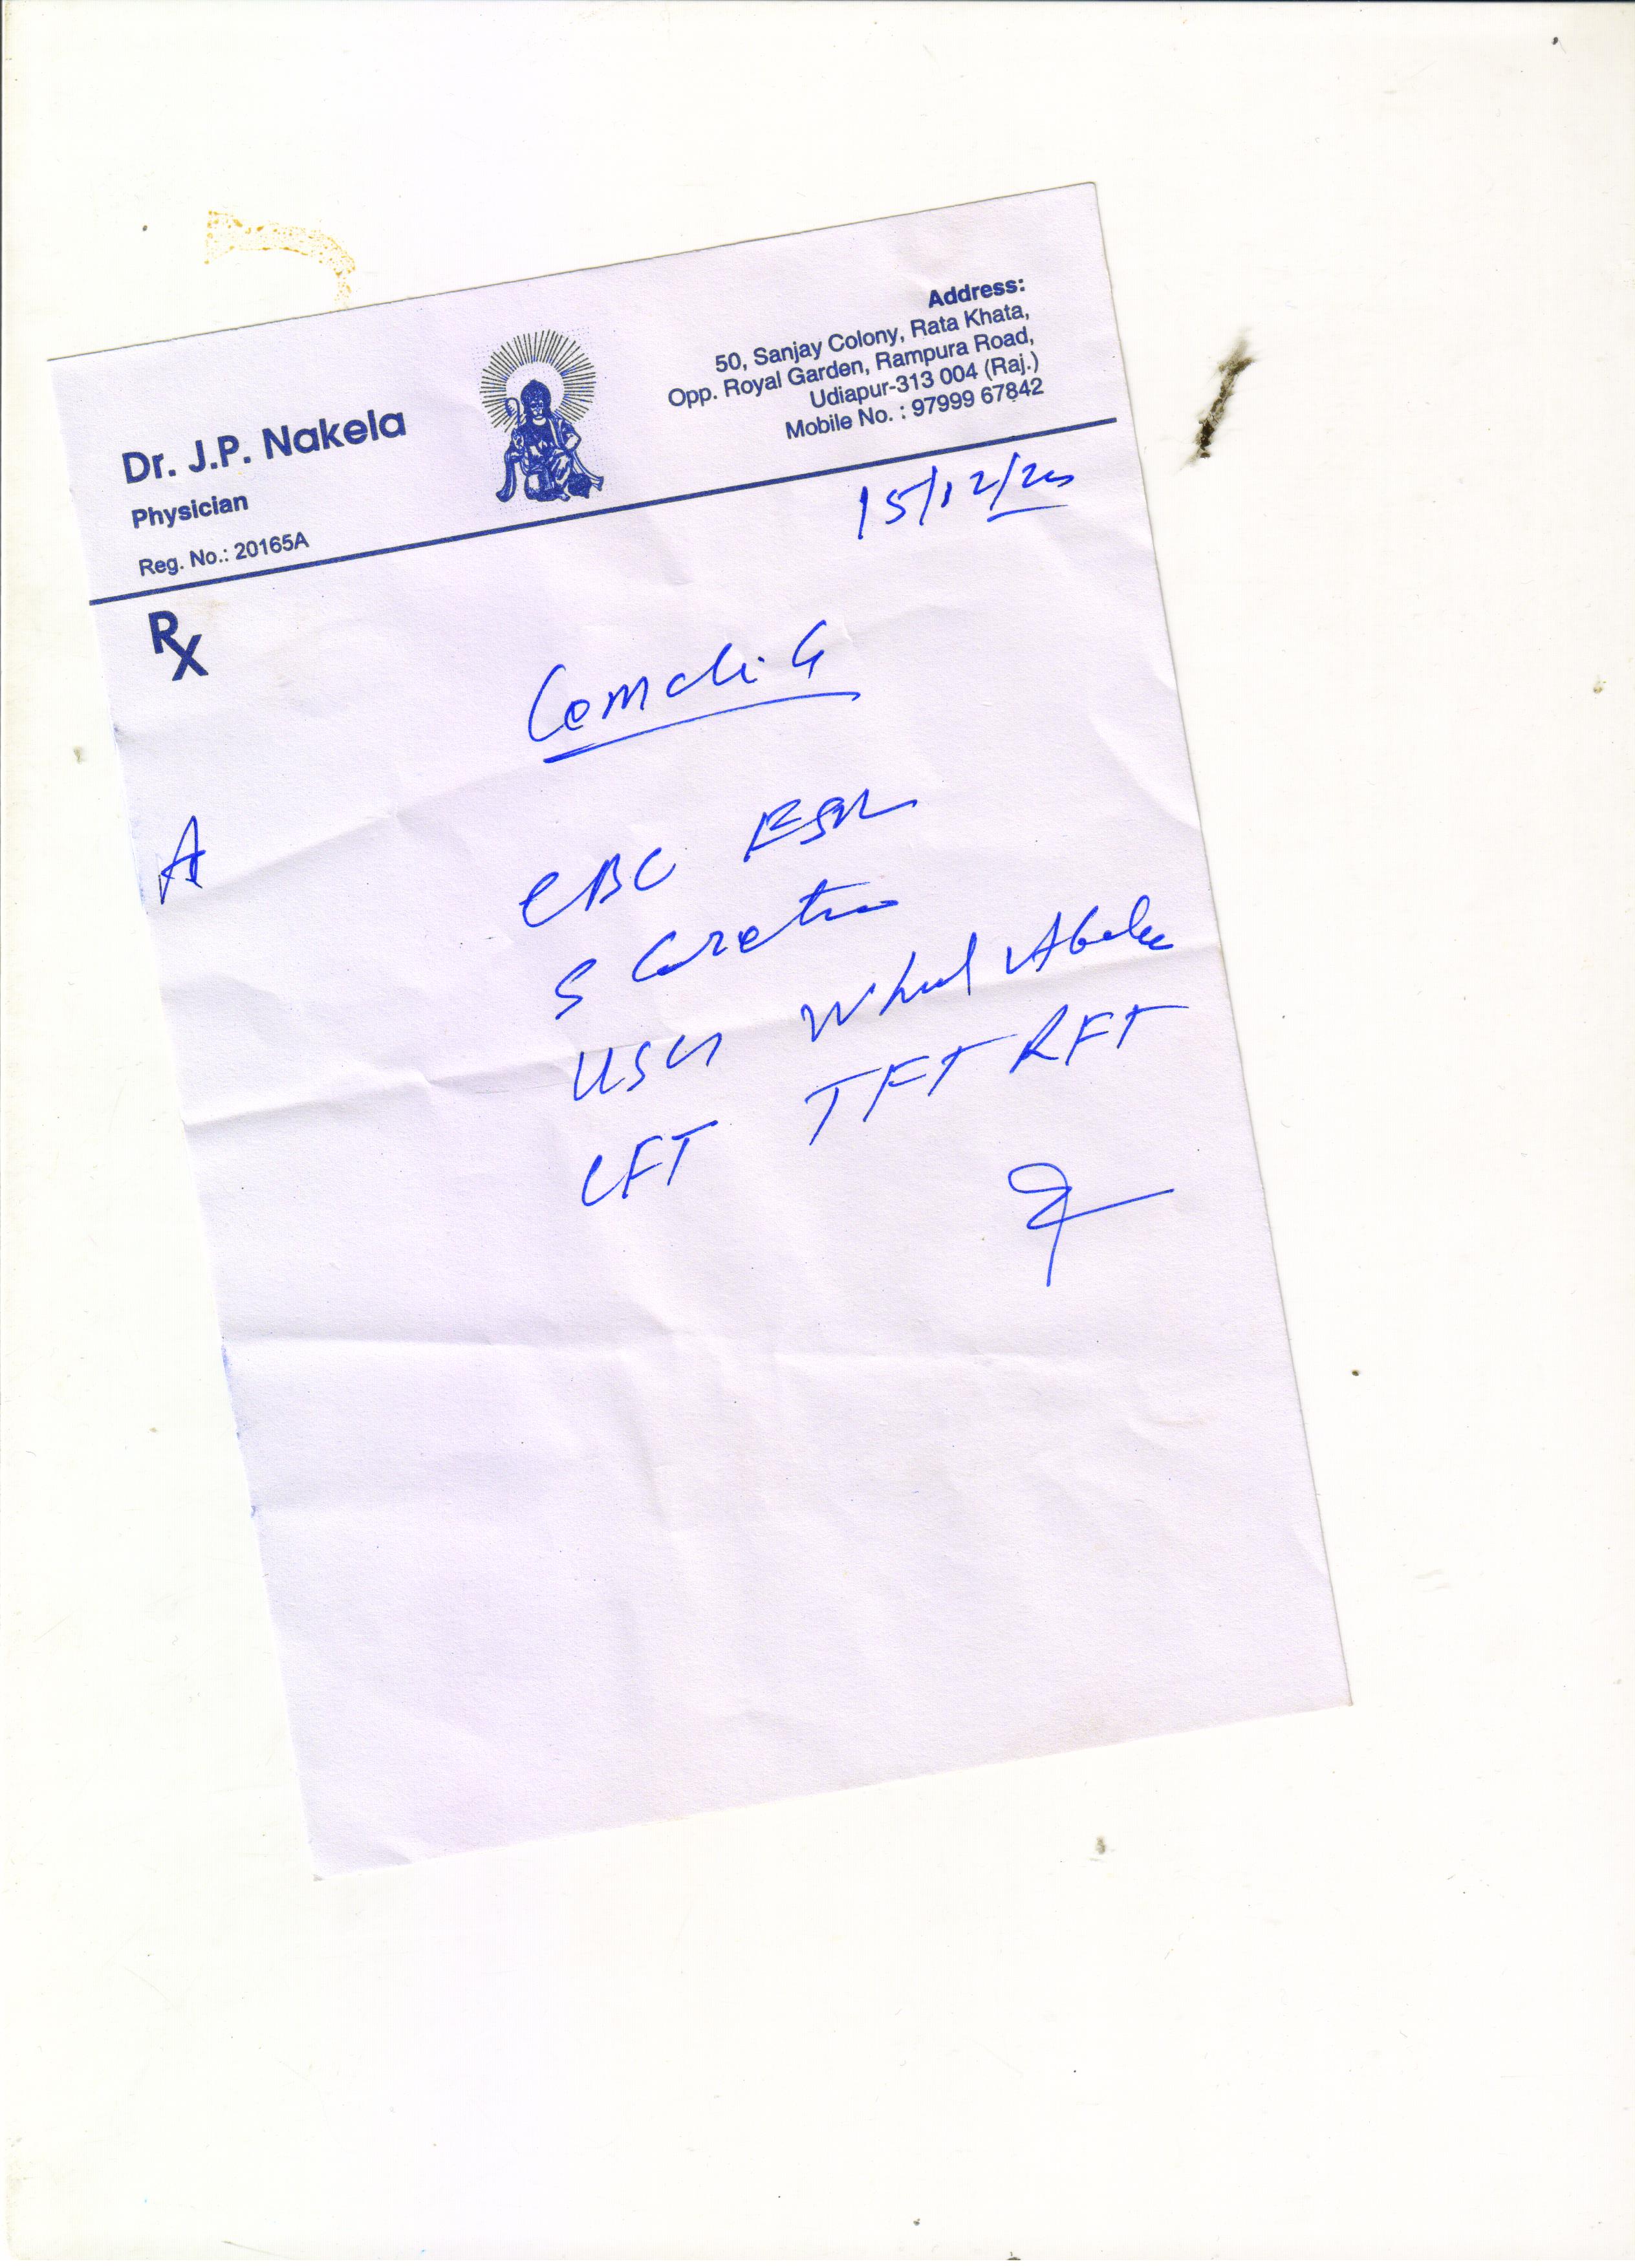 Dr. J.P. Nakela
Physician
Reg. No.: 20165A
Address:
50, Sanjay Colony, Rata Khata,
Opp. Royal Garden, Rampura Road,
Udiapur-313 004 (Raj.)
Mobile No. : 97999 67842
15/12/
Rx
A
CBC ESR
S
USG Whol
LFT TFT RFT